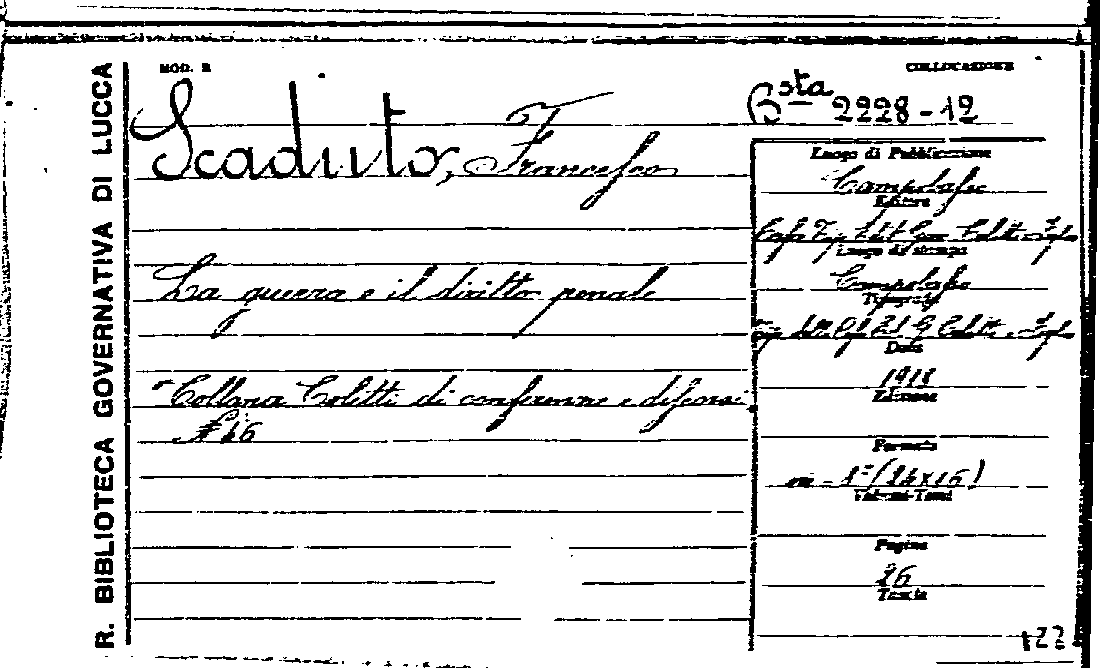 R. BIBLIOTECA GOVERNATIVA DI LUCCA
MOD. B
COLLOCAZIONE
Bsta 2228-12
Scaduto, Francesco
La guerra e il diritto penale
"Collana Colitti di conferenze e discorsi
N 46
Luogo di Pubblicazione
Campobasso
Editore
Casa Tip. Edit. Colitti
Luogo di stampa
Campobasso
Tipografo
Colitti
Data
1918
Edizione
Formato
in - (24x16)
Volumi-Tomi
Pagine
26
Tavole
122